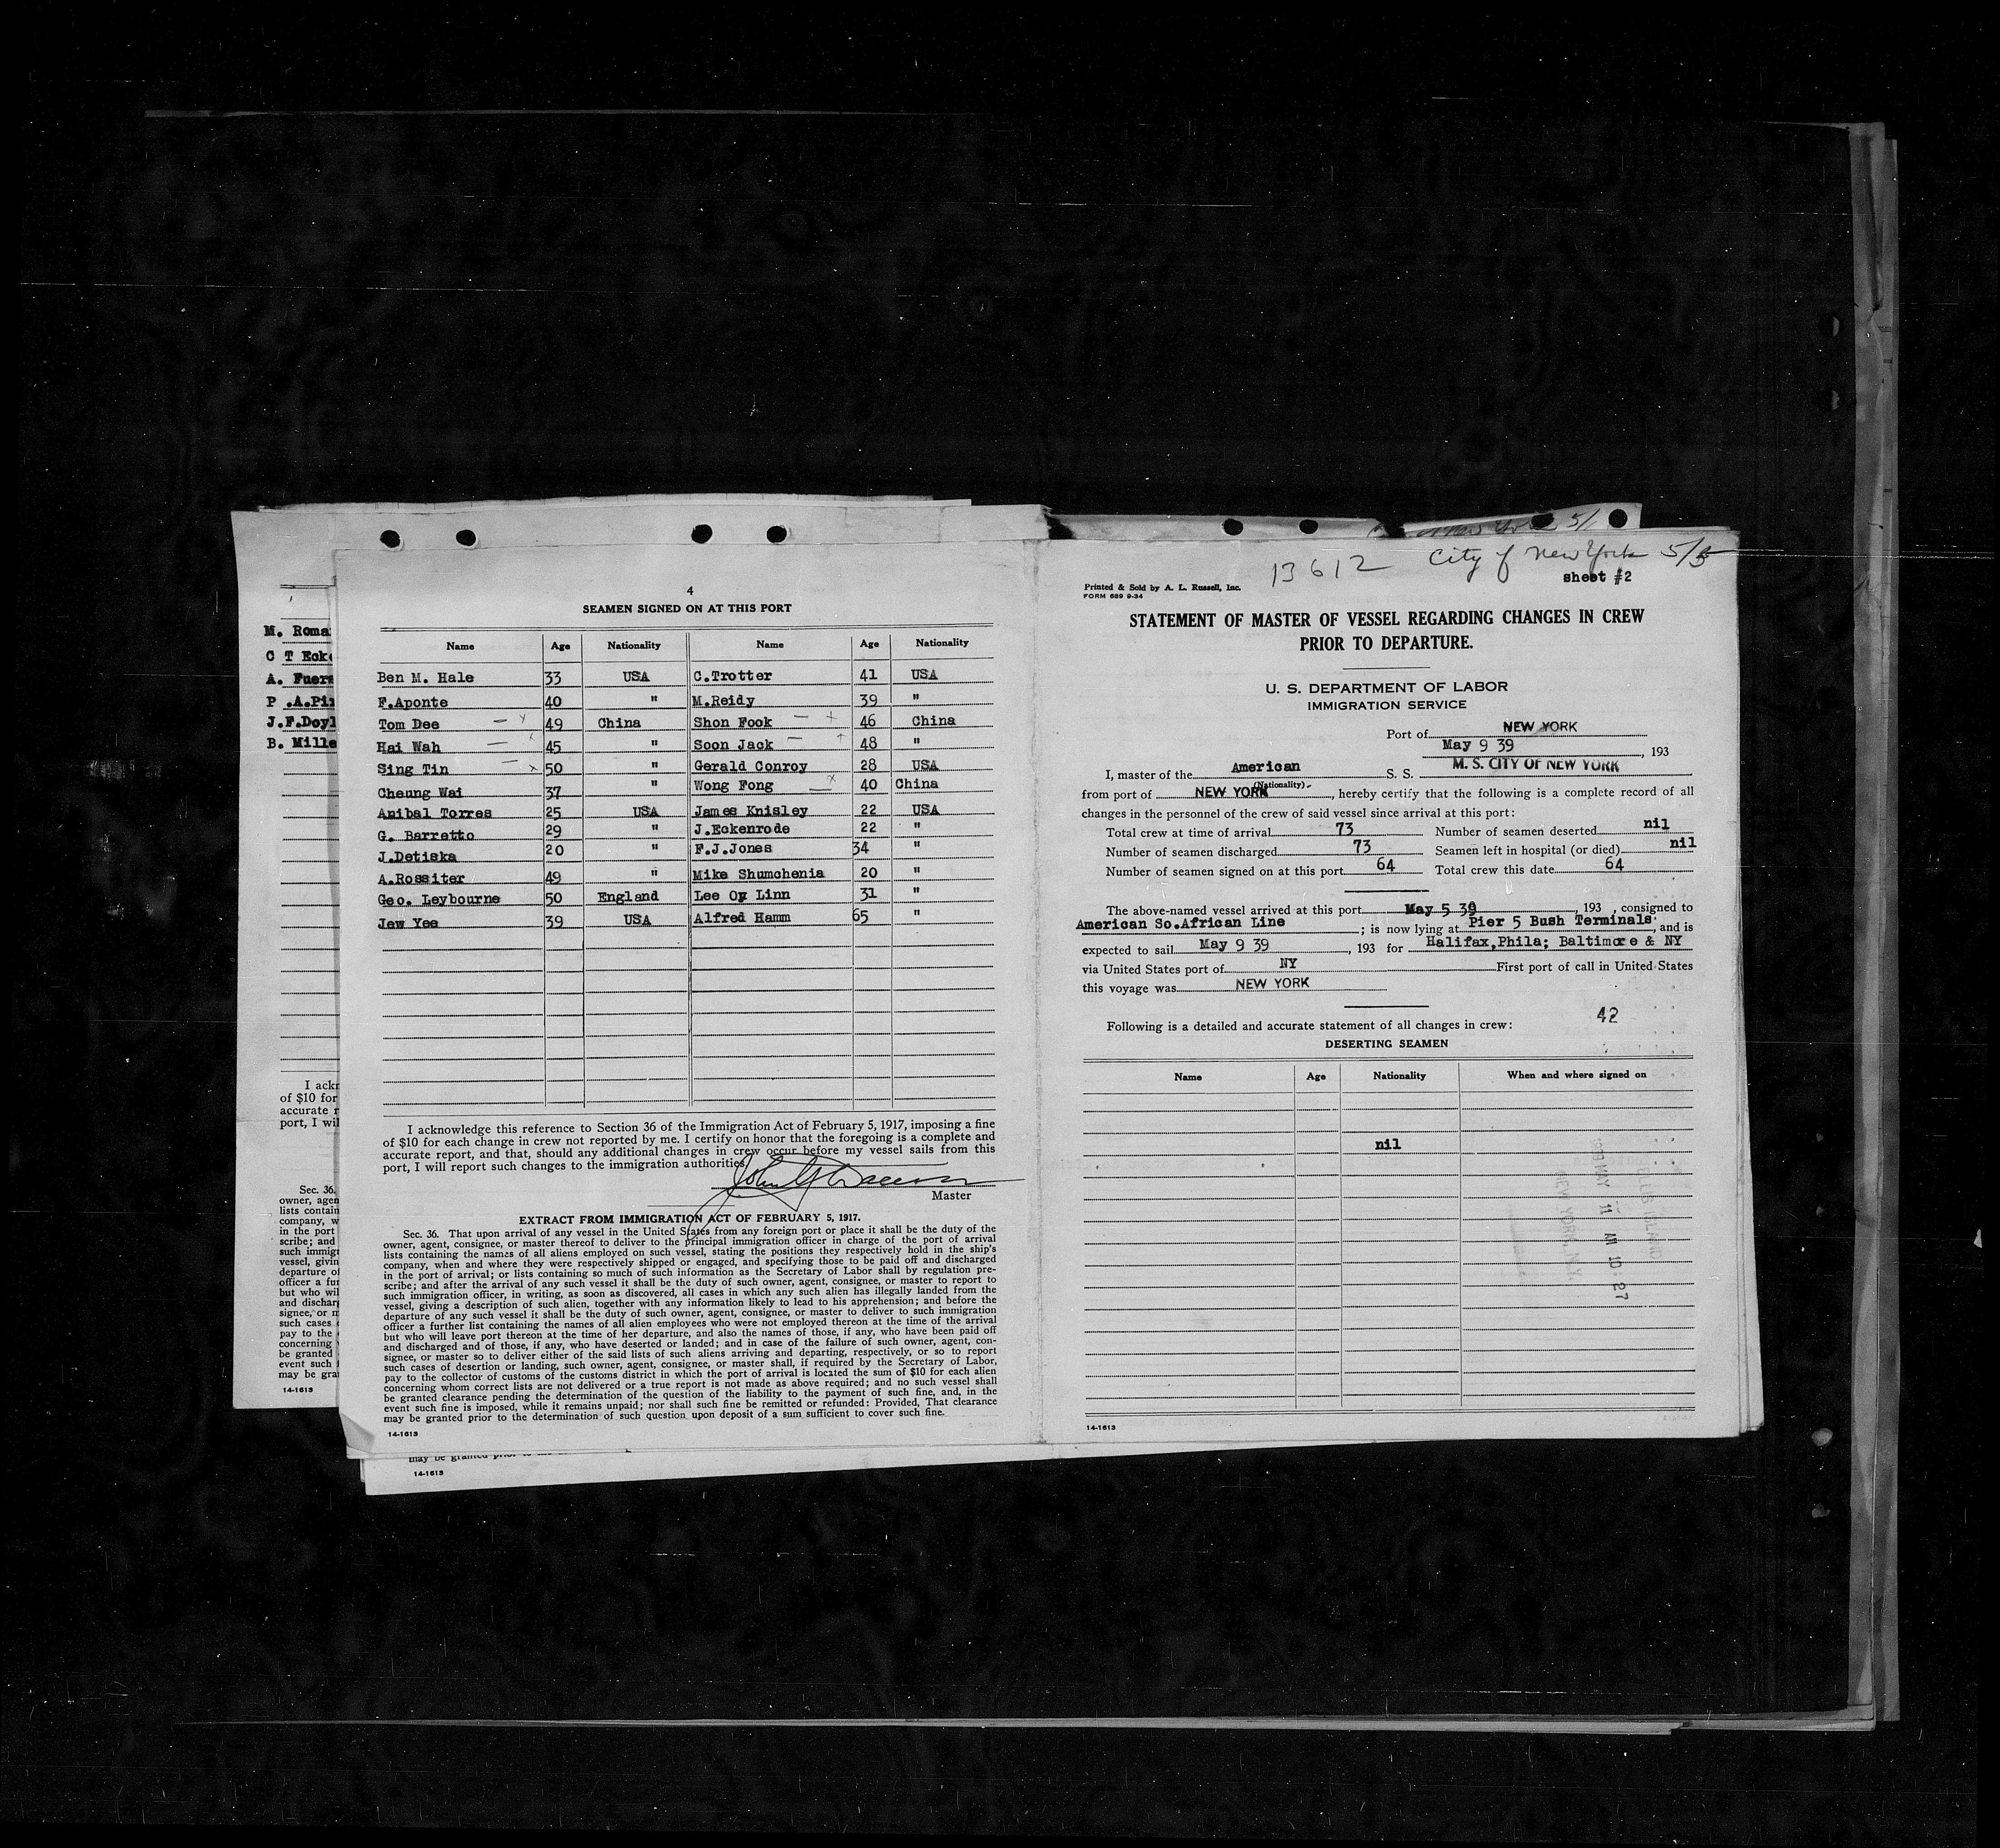 M. Roma
C T Eck
A. Fuer
P .A.Pi
J.F.Doyl
B. Mille
I ackr
of $10 for
accurate r
port, I wil
Sec. 36.
owner, agen
lists contain
company, w
in the port
scribe; and
such immigr
vessel, givin
departure of
officer a fur
but who wil
and dischar
signee, or m
such cases
pay to the
concerning
be granted
event such
may be gra
14-1613
4
SEAMEN SIGNED ON AT THIS PORT
Name Age Nationality Name Age Nationality
Ben M. Hale 33 USA C.Trotter 41 USA
F.Aponte 40 " M.Reidy 39 "
Tom Dee — x 49 China Shon Fook — + 46 China
Hai Wah — x 45 " Soon Jack — + 48 "
Sing Tin — x 50 " Gerald Conroy 28 USA
Cheung Wai 37 " Wong Fong — x 40 China
Anibal Torres 25 USA James Knisley 22 USA
G. Barretto 29 " J.Eckenrode 22 "
J.Detiska 20 " F.J.Jones 34 "
A.Rossiter 49 " Mike Shumchenia 20 "
Geo. Leybourne 50 England Lee Oy Linn 31 "
Jew Yee 39 USA Alfred Hamm 65 "
I acknowledge this reference to Section 36 of the Immigration Act of February 5, 1917, imposing a fine
of $10 for each change in crew not reported by me. I certify on honor that the foregoing is a complete and
accurate report, and that, should any additional changes in crew occur before my vessel sails from this
port, I will report such changes to the immigration authorities.
Master
EXTRACT FROM IMMIGRATION ACT OF FEBRUARY 5, 1917.
Sec. 36. That upon arrival of any vessel in the United States from any foreign port or place it shall be the duty of the
owner, agent, consignee, or master thereof to deliver to the principal immigration officer in charge of the port of arrival
lists containing the names of all aliens employed on such vessel, stating the positions they respectively hold in the ship's
company, when and where they were respectively shipped or engaged, and specifying those to be paid off and discharged
in the port of arrival; or lists containing so much of such information as the Secretary of Labor shall by regulation pre-
scribe; and after the arrival of any such vessel it shall be the duty of such owner, agent, consignee, or master to report to
such immigration officer, in writing, as soon as discovered, all cases in which any such alien has illegally landed from the
vessel, giving a description of such alien, together with any information likely to lead to his apprehension; and before the
departure of any such vessel it shall be the duty of such owner, agent, consignee, or master to deliver to such immigration
officer a further list containing the names of all alien employees who were not employed thereon at the time of the arrival
but who will leave port thereon at the time of her departure, and also the names of those, if any, who have been paid off
and discharged and of those, if any, who have deserted or landed; and in case of the failure of such owner, agent, con-
signee, or master so to deliver either of the said lists of such aliens arriving and departing, respectively, or so to report
such cases of desertion or landing, such owner, agent, consignee, or master shall, if required by the Secretary of Labor,
pay to the collector of customs of the customs district in which the port of arrival is located the sum of $10 for each alien
concerning whom correct lists are not delivered or a true report is not made as above required; and no such vessel shall
be granted clearance pending the determination of the question of the liability to the payment of such fine, and, in the
event such fine is imposed, while it remains unpaid; nor shall such fine be remitted or refunded: Provided, That clearance
may be granted prior to the determination of such question upon deposit of a sum sufficient to cover such fine.
14-1613
may be granted prior to
14-1613
13612 City of New York 5/5
sheet #2
Printed & Sold by A. L. Russell, Inc.
FORM 689 9-34
STATEMENT OF MASTER OF VESSEL REGARDING CHANGES IN CREW
PRIOR TO DEPARTURE.
U. S. DEPARTMENT OF LABOR
IMMIGRATION SERVICE
Port of NEW YORK
May 9 39, 193
I, master of the American S. S. M. S. CITY OF NEW YORK
(Nationality)
from port of NEW YORK, hereby certify that the following is a complete record of all
changes in the personnel of the crew of said vessel since arrival at this port:
Total crew at time of arrival 73 Number of seamen deserted nil
Number of seamen discharged 73 Seamen left in hospital (or died) nil
Number of seamen signed on at this port 64 Total crew this date 64
The above-named vessel arrived at this port May 5 39, 193 , consigned to
American So.African Line; is now lying at Pier 5 Bush Terminals, and is
expected to sail May 9 39, 193 for Halifax,Phila; Baltimore & NY
via United States port of NY First port of call in United States
this voyage was NEW YORK
42
Following is a detailed and accurate statement of all changes in crew:
DESERTING SEAMEN
Name Age Nationality When and where signed on
nil
ELLIS ISLAND
1939 MAY 11 AM 10:27
NEW YORK, N.Y.
14-1613